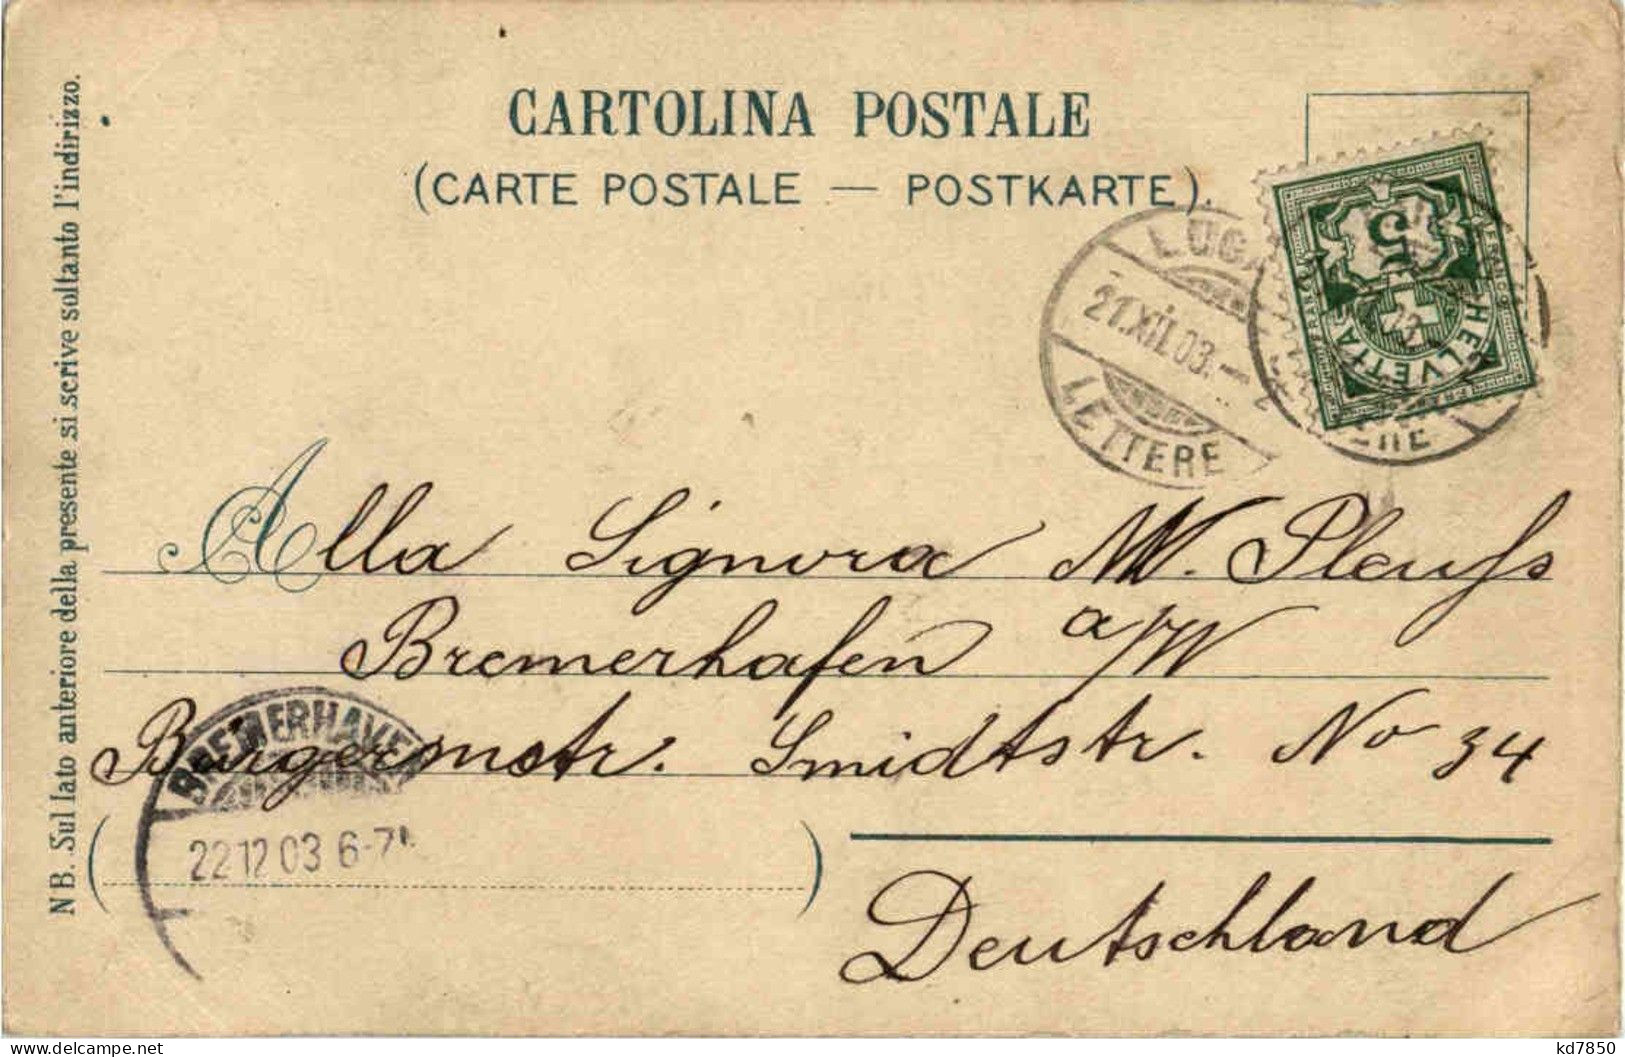 CARTOLINA POSTALE
(CARTE POSTALE — POSTKARTE).
NB. Sul lato anteriore della presente si scrive soltanto l'indirizzo.
5
FRANCO
HELVETIA
21.XII.03.
LETTERE
Alla Signora M. Pleuss
Bremerhafen a/W
Bürgermstr. Smidtstr. No 34
BREMERHAVEN
22 12 03 6-7
Deutschland
kd7850